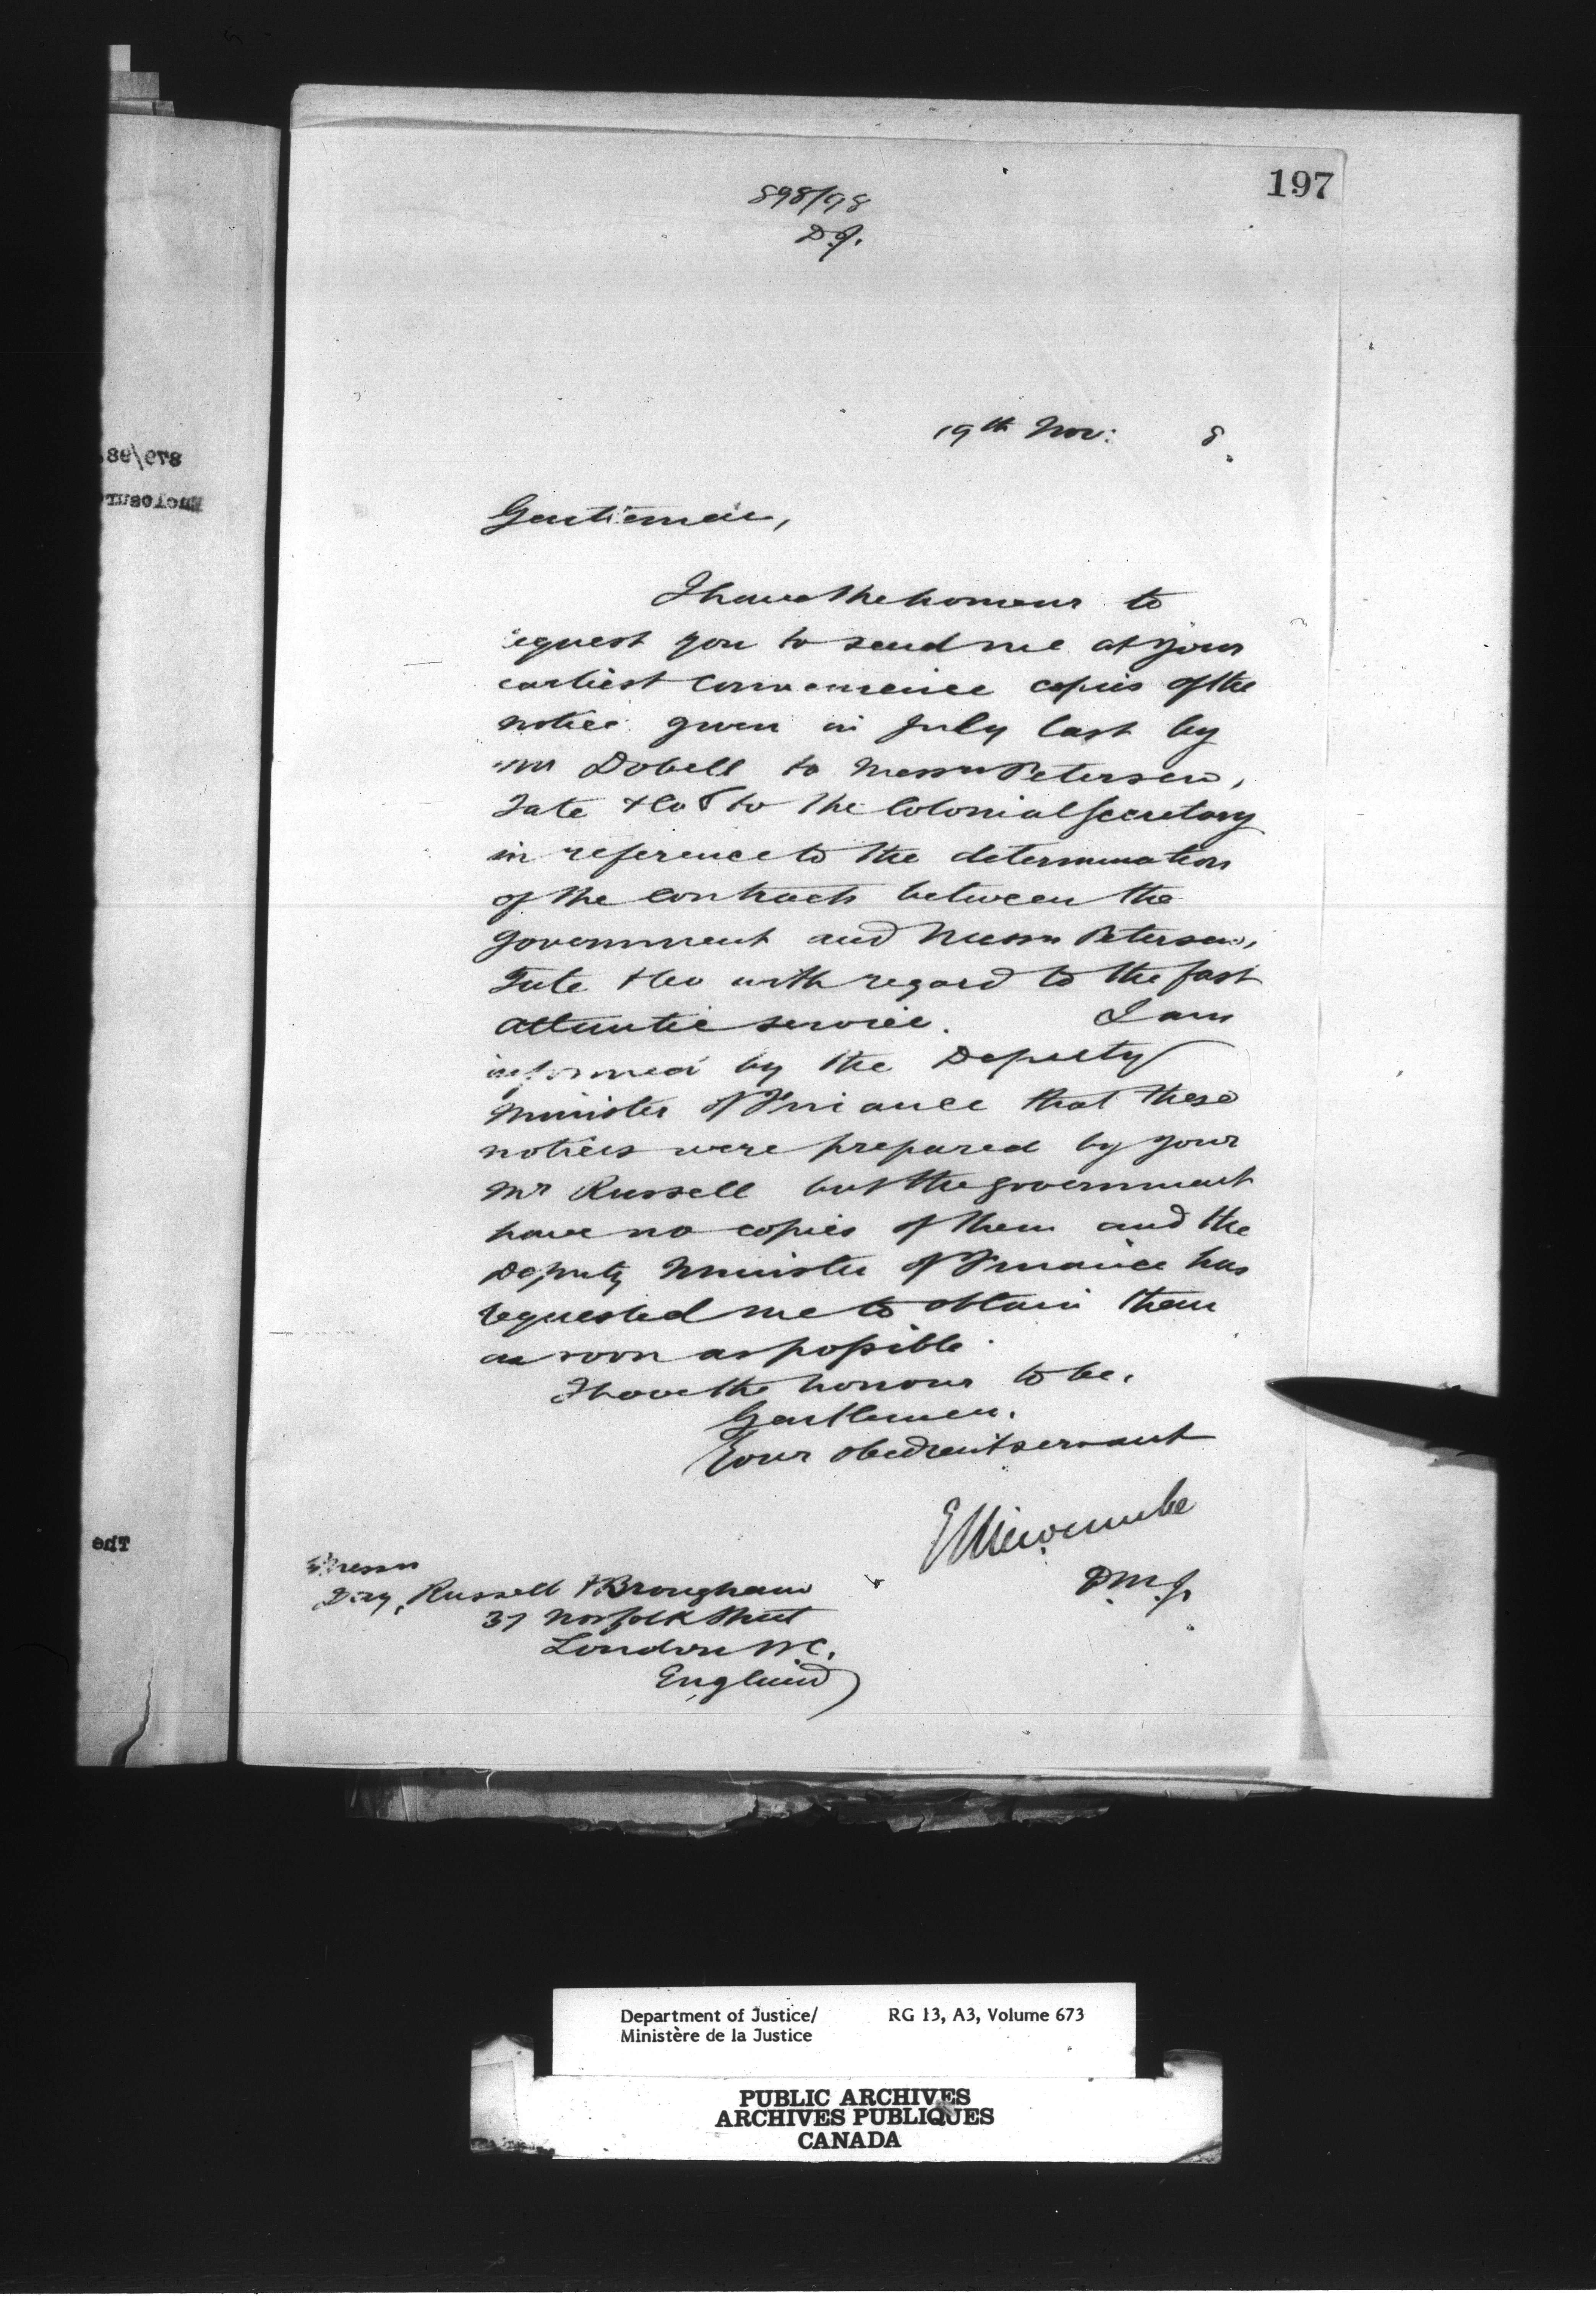 197
898/98
D.J.
19th Nov: 8.
Gentlemen,
I have the honour to
request you to send me at your
earliest convenience copies of the
notice given in July last by
Mr Dobell to Messrs Petersen,
Tate & Co & to the Colonial Secretary
in reference to the determination
of the contracts between the
Government and Messrs Petersen,
Tate & Co with regard to the fast
Atlantic service. I am
informed by the Deputy
Minister of Finance that these
notices were prepared by your
Mr Russell but the government
have no copies of them and the
Deputy Minister of Finance has
requested me to obtain them
as soon as possible.
I have the honour to be,
Gentlemen,
Your obedient servant
E L Newcombe
D.M.J.
Messrs
Day, Russell & Brougham
37 Norfolk Street
London W.C.
England
879/98
Enclosur
The
Department of Justice/ RG 13, A3, Volume 673
Ministère de la Justice
PUBLIC ARCHIVES
ARCHIVES PUBLIQUES
CANADA